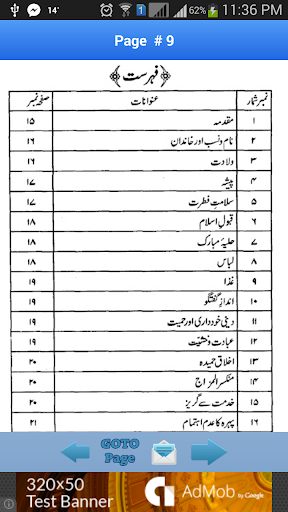 14°
62%
11:36 PM
Page # 9
فہرست
نمبر شمار عنوانات صفحہ نمبر
۱ مقدمہ ۱۵
۲ نام و نسب اور خاندان ۱۶
۳ ولادت ۱۶
۴ پیشہ ۱۷
۵ سلامتِ فطرت ۱۷
۶ قبولِ اسلام ۱۸
۷ حلیۂ مبارک ۱۸
۸ لباس ۱۸
۹ غذا ۱۹
۱۰ اندازِ گفتگو ۱۹
۱۱ دینی خودداری اور حمیت ۱۹
۱۲ عبادت و خشیت ۱۹
۱۳ اخلاقِ حمیدہ ۲۰
۱۴ منکسر المزاج ۲۰
۱۵ خدمت سے گریز ۲۰
۱۶ پہرہ کا عدم اہتمام ۲۱
GOTO
Page
320x50
Test Banner
AdMob by Google